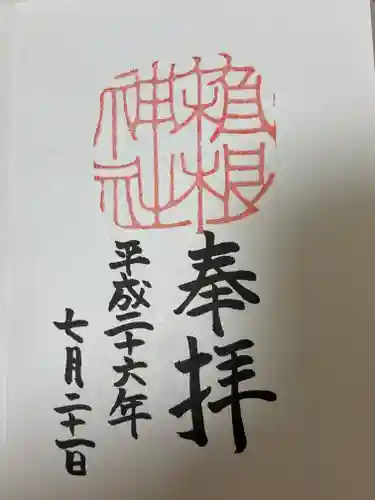 根
神社
奉拝
平成二十六年
七月二十一日